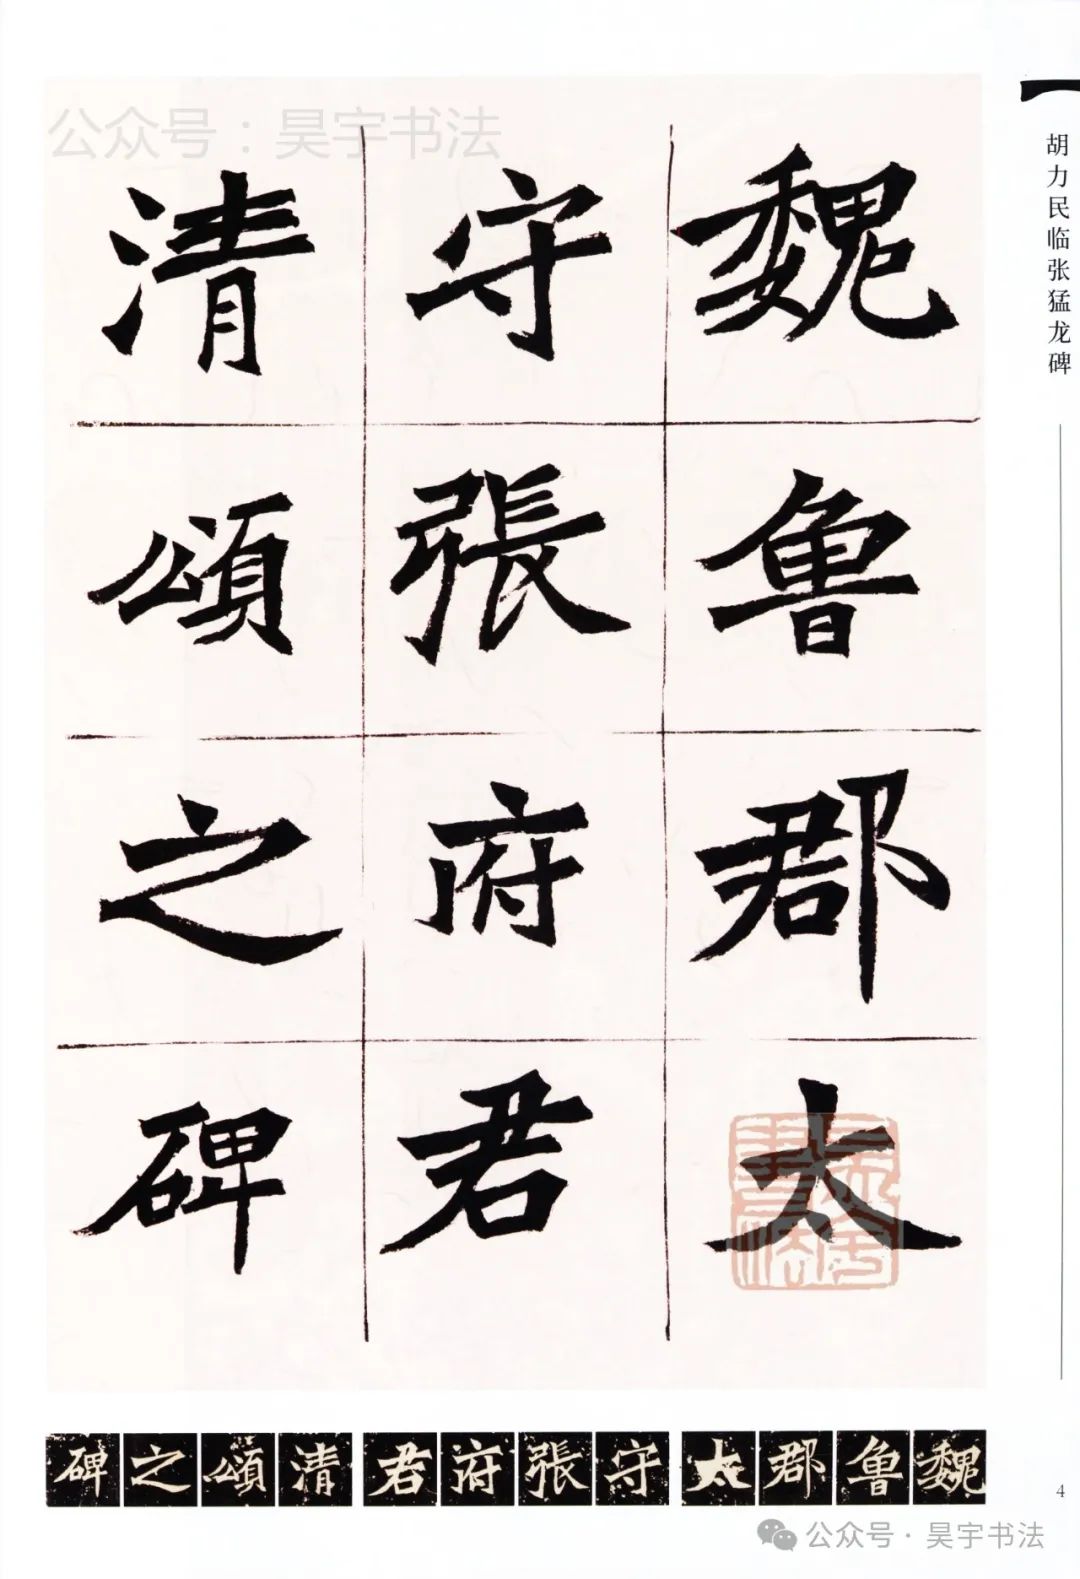 公众号：昊宇书法
胡力民临张猛龙碑
魏魯郡太
守張府君
清頌之碑
碑之頌清君府張守太郡魯魏
4
公众号·昊宇书法